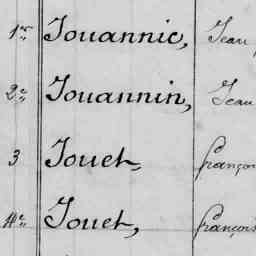 1er Jouannic, Jean
2e Jouannin, Jean
3 Jouet, François
4e Jouet, François